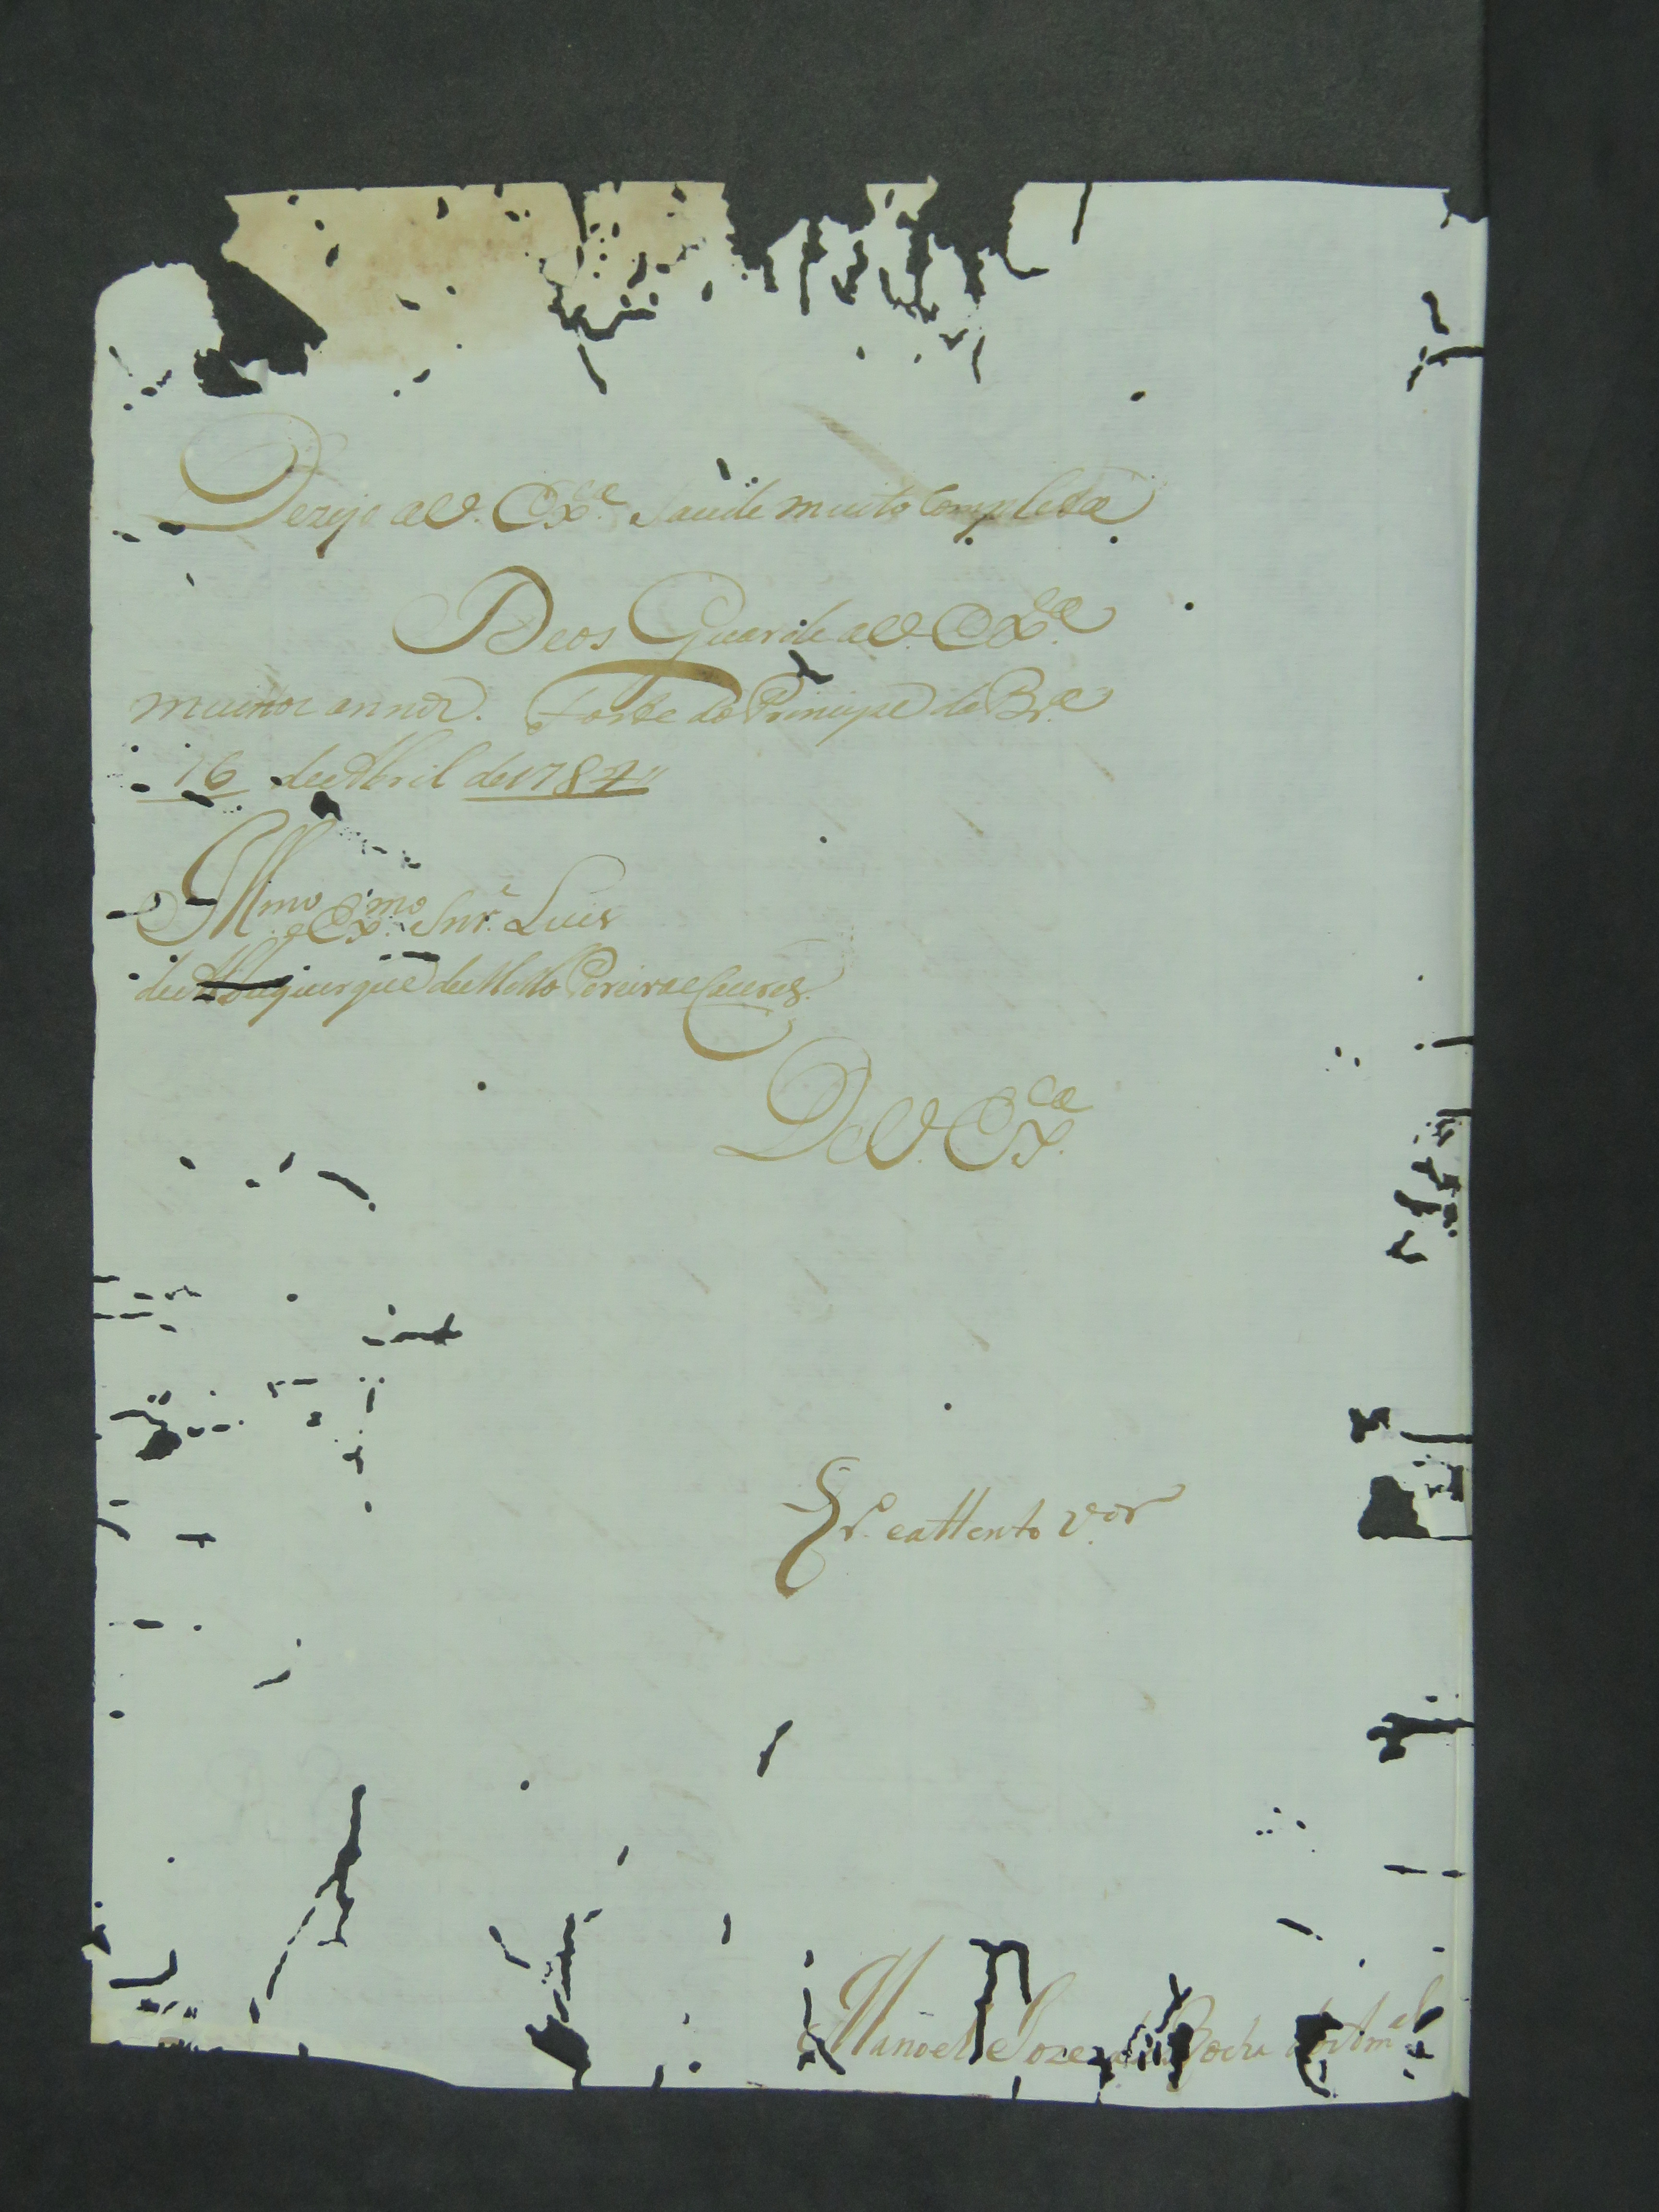 Dezejo a V. Ex.ca Saude muito Completa
Deos Guarde a V. Ex.ca
muitos annos. Forte do Principe da Br.a
16 de Abril de 1784"
Illmo e Exmo Snr. Luis
de Albuquerque de Mello Pereira e Caceres.
De V. Ex.ca
Sr. e attento V.or
Manoel Joze da Rocha